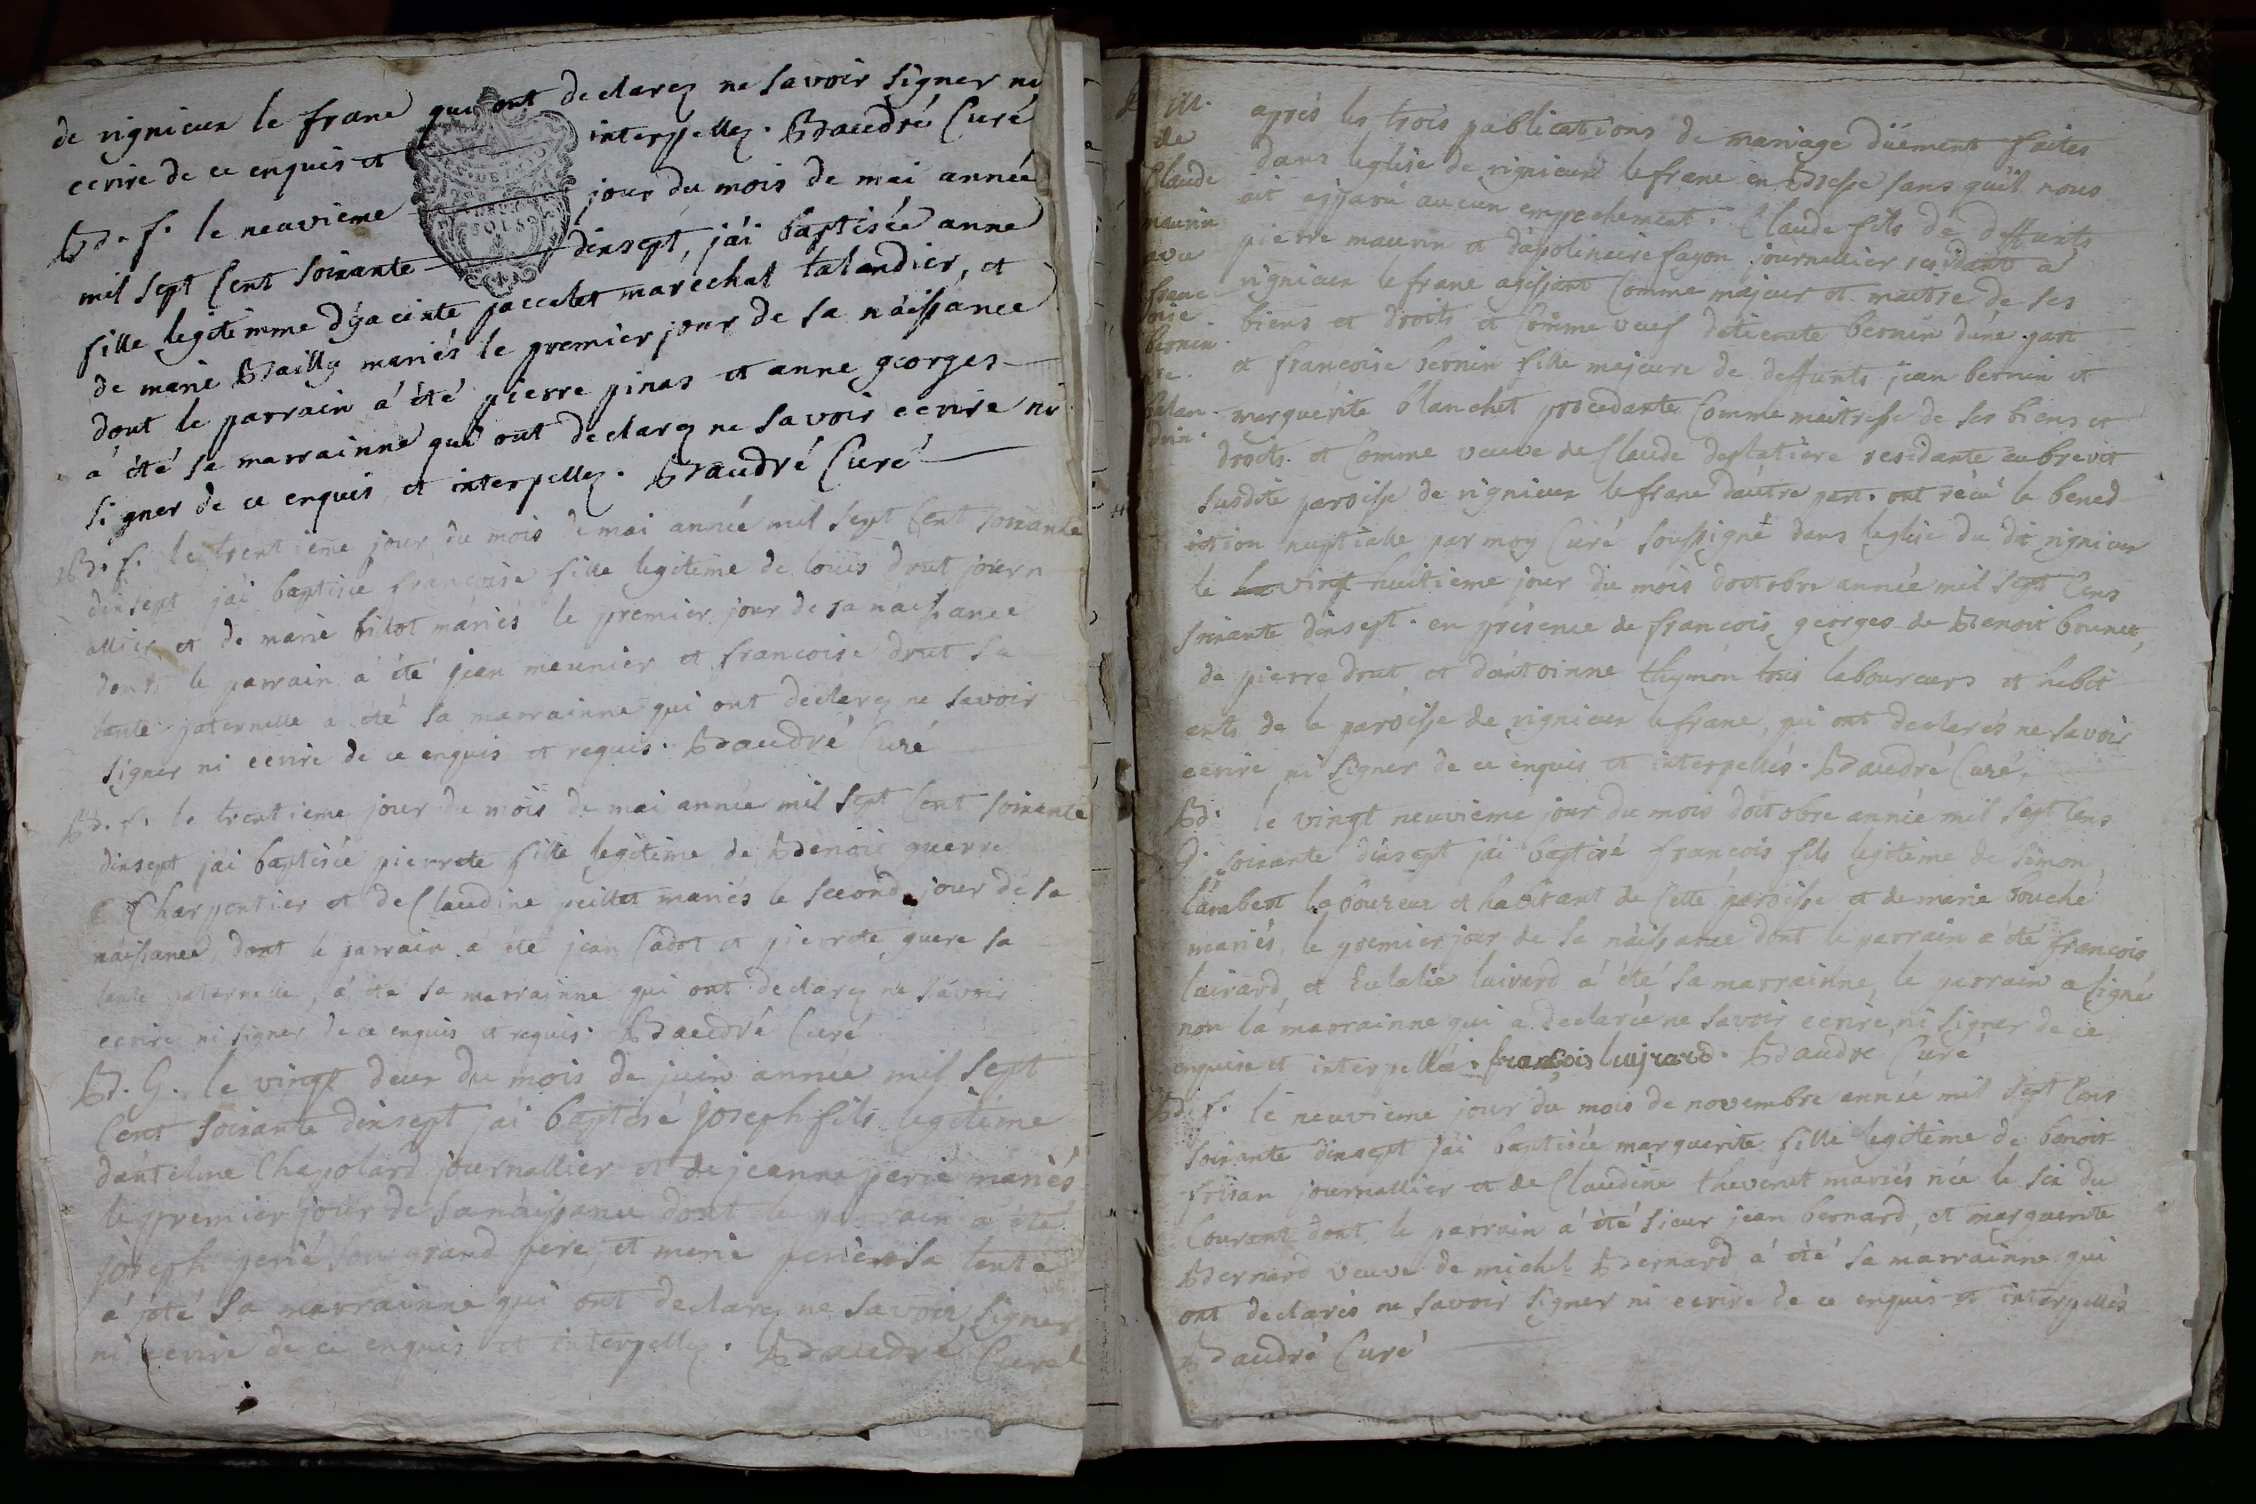 de rignieux le franc qui ont declarez ne savoir signer ni
ecrire de ce enquis et interpellez. Baudré Curé
B. f. le neuvieme jour du mois de mai année
mil sept cent soixante dixsept, j'ai baptisée anne
fille legitimme d'yacinte jaccelet marechal talandier, et
de marie Bailly mariés le premier jour de sa naissance
dont le parrain a été pierre pinas et anne georges
a été sa marrainne qui ont declarez ne savoir ecrire ni
signer de ce enquis et interpellez. Baudré Curé
B. f. le trentieme jour du mois de mai année mil sept cent soixante
dixsept j'ai baptisée francoise fille legitime de louis drut journ
allier et de marie bilot mariés le premier jour de sa naissance
dont le parrain a été jean meunier et francoise drut sa
tante paternelle a été sa marrainne qui ont declarez ne savoir
signer ni ecrire de ce enquis et requis. Baudré Curé
B. f. le trentieme jour du mois de mai année mil sept cent soixante
dixsept j'ai baptisée pierrete fille legitime de Benoit guerre
Charpentier et de Claudine peillet mariés le second jour de sa
naissance, dont le parrain a été jean Cadot et pierrete guere sa
tante paternelle, a été sa marrainne qui ont declarez ne savoir
ecrire ni signer de ce enquis et requis. Baudré Curé
B. G. le vingt deux du mois de juin année mil sept
Cent soixante dixsept j'ai baptisé joseph fils legitime
d'anteline Chapolard journallier et de jeanne perié mariés
le premier jour de sa naissance dont le parrain a été
joseph perié son grand pere, et marie perié sa tante
a été sa marrainne qui ont declarez ne savoir signer
ni ecrire de ce enquis et interpellez. Baudré Curé
M.
de
Claude
maurin
avec
franc
oise
bernin
apres les trois publications de mariage düement faites
dans leglise de rignieux le franc en Bresse sans qu'il nous
ait apparu aucun empechement. Claude fils de deffunts
pierre maurin et d'apolinaire fayon journallier residant a
rignieux le franc agissant comme majeur et maitre de ses
biens et droits et comme veuf d'etienete bernin d'une part
et francoise bernin fille majeure de deffunts jean bernin et
marguerite blanchet procedante comme maitresse de ses biens et
droits et comme veuve de Claude deplatiere residante au brevet
susdite paroisse de rignieux le franc d'autre part. ont recu la bened
iction nuptialle par moy Curé soussigné dans leglise du dit rignieux
le vingt huitieme jour du mois d'octobre année mil sept Cens
soixante dixsept. en présence de francois georges de Benoit brunet,
de pierre drut et d'antoinne thymon tous laboureurs et habit
ents de la paroisse de rignieux le franc, qui ont declarés ne savoir
ecrire ni signer de ce enquis et interpellés. Baudré Curé.
B. le vingt neuvieme jour du mois d'octobre année mil sept Cens
G. soixante dixsept j'ai baptisé francois fils legitime de simon
lambert laboureur et habitant de Cette paroisse et de marie bouche
mariés, le premier jour de sa naissance dont le parrain a été francois
luirard, et Eulalie luirard a été sa marrainne, le parrain a signé
non la marrainne qui a declarée ne savoir ecrire ni signer de ce
enquise et interpellée. francois lujrard. Baudré Curé
B. f. le neuvieme jour du mois de novembre année mil sept Cens
soixante dixsept j'ai baptisée marguerite fille legitime de benoit
frisan journallier et de Claudine thevenet mariés née le six du
Courant dont le parrain a été sieur jean bernard, et marguerite
Bernard veuve de michel Bernard a été sa marrainne qui
ont declarés ne savoir signer ni ecrire de ce enquis et interpellés
Baudré Curé